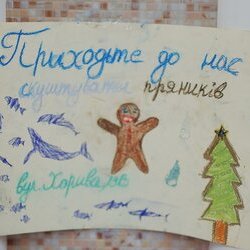 Приходьте до нас
скуштувати пряників
вул. Хорива